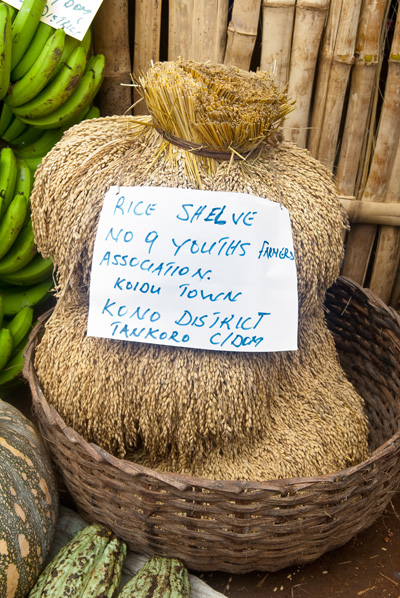 RICE SHELVE
NO 9 YOUTHS FARMERS
ASSOCIATION.
KOIDU TOWN
KONO DISTRICT
TANKORO C/DOM